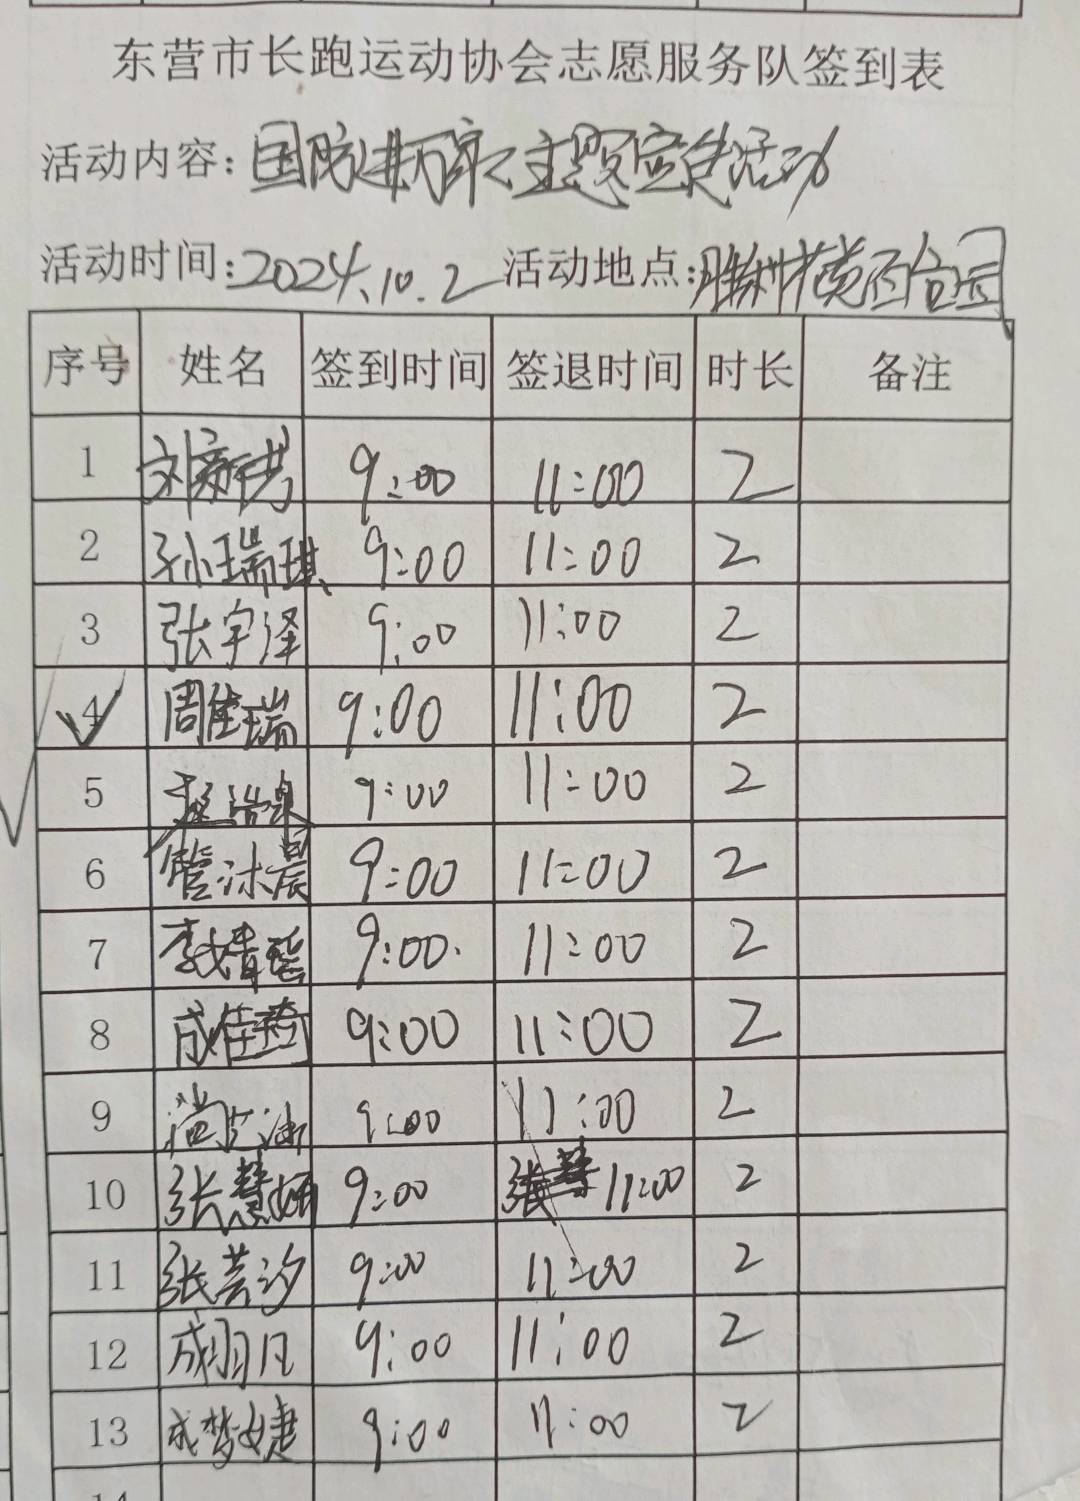 东营市长跑运动协会志愿服务队签到表
活动内容：国防进万家主题宣传活动
活动时间：2024.10.2 活动地点：胜利
序号 姓名 签到时间 签退时间 时长 备注
1 9:00 11:00 2
2 孙瑞琪 9:00 11:00 2
3 张宇泽 9:00 11:00 2
4 周佳瑞 9:00 11:00 2
5 9:00 11:00 2
6 管沐晨 9:00 11:00 2
7 李婧瑶 9:00 11:00 2
8 成佳琦 9:00 11:00 2
9 9:00 11:00 2
10 张慧妍 9:00 11:00 2
11 张芸汐 9:00 11:00 2
12 成羽凡 9:00 11:00 2
13 成梦婕 9:00 11:00 2
14